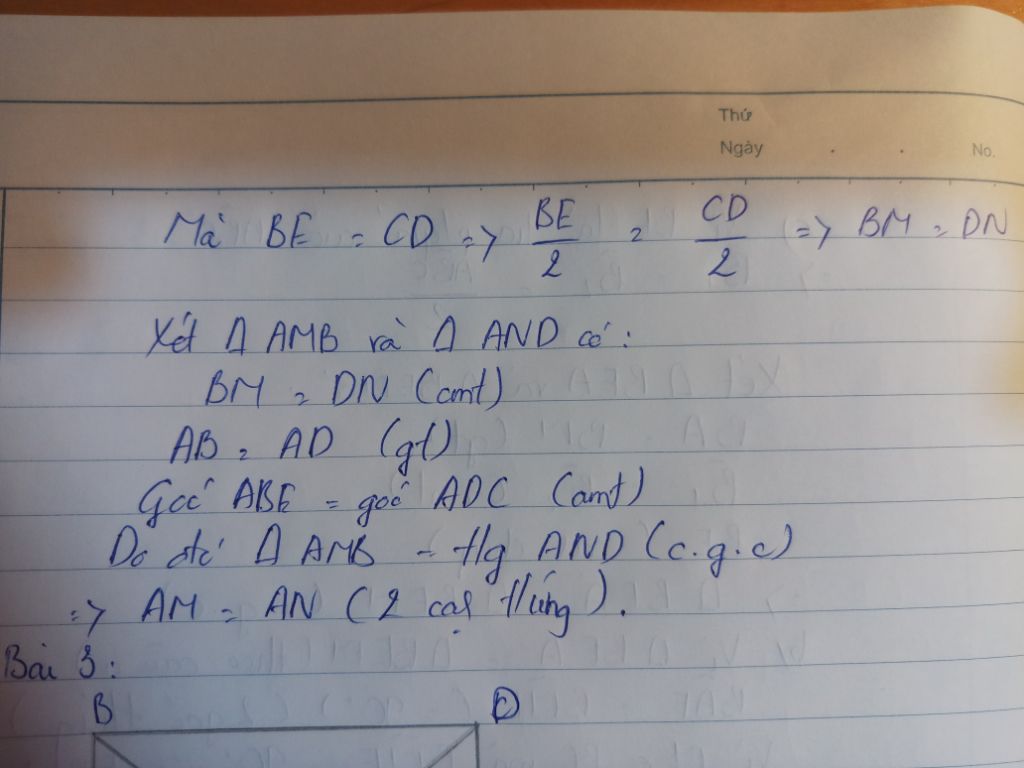 Thứ
Ngày . . No.
Mà BE = CD => BE/2 = CD/2 => BM = DN
Xét Δ AMB và Δ AND có:
BM = DN (cmt)
AB = AD (gt)
Góc ABE = góc ADC (cmt)
Do đó Δ AMB = tg AND (c.g.c)
=> AM = AN (2 cạ t/ứng).
Bài 3:
B D